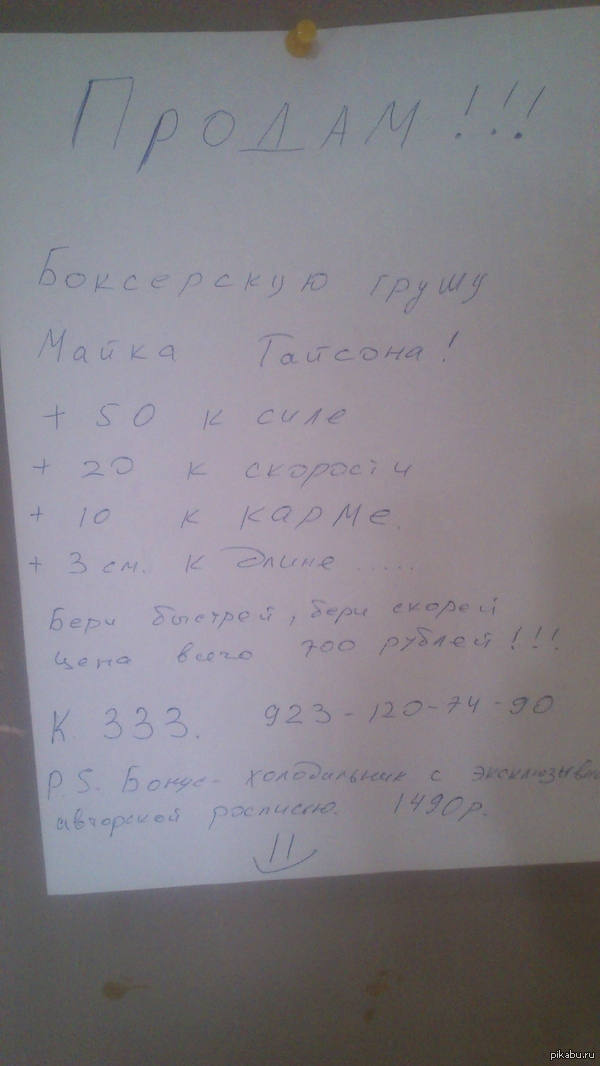 ПРОДАМ!!!
Боксерскую грушу
Майка Тайсона!
+ 50 к силе
+ 20 к скорости
+ 10 к карме.
+ 3 см. к длине .....
Бери быстрей, бери скорей
цена всего 700 рублей!!!
К. 333. 923-120-74-90
P.S. Бонус- холодильник с эксклюзывно
авторской росписью. 1490р.
pikabu.ru